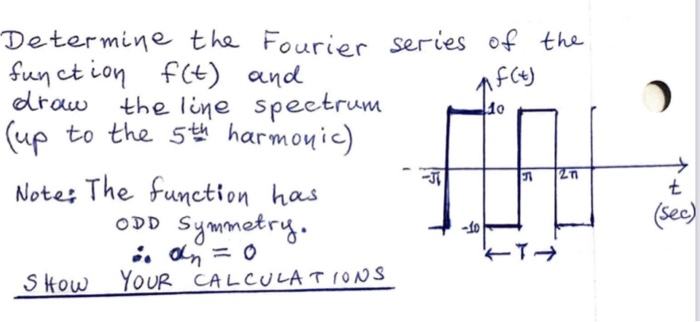 Determine the Fourier series of the
function f(t) and
draw the line spectrum
(up to the 5th harmonic)
Note: The function has
ODD symmetry.
∴ an = 0
SHOW YOUR CALCULATIONS
f(t)
10
-π
π
2π
t
(sec)
-10
←T→